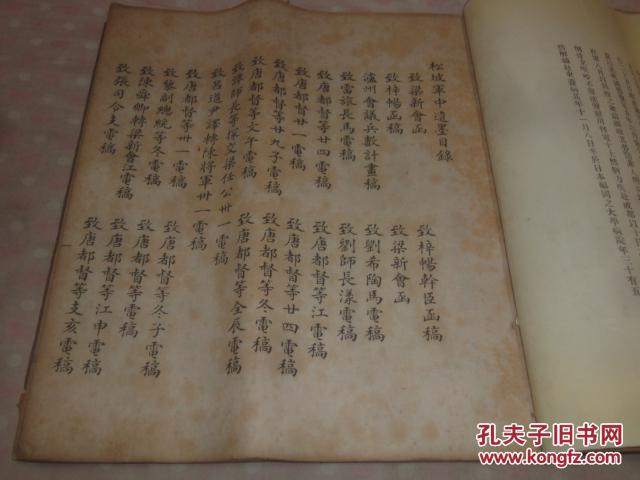 松坡軍中遺墨目錄
致梁新會函
致梓暢函稿
瀘州會議兵數計畫稿
致雷旅長馬電稿
致唐都督等廿四電稿
致唐都督廿一電稿
致唐都督等廿九子電稿
致唐都督等文午電稿
致譚師長等探交梁任公卅一電稿
致呂道尹譯轉陳將軍卅一電稿
致唐都督等卅一電稿
致黎副總統等冬電稿
致陳舜卿轉梁新會江電稿
致張司令支電稿
致梓暢幹臣函稿
致梁新會函
致劉希陶馬電稿
致劉師長漾電稿
致唐都督等江電稿
致唐都督等廿四電稿
致唐都督等冬電稿
致唐都督等全辰電稿
致唐都督等冬子電稿
致唐都督等電稿
致唐都督等江申電稿
致唐都督等支亥電稿
一
年十一月八日卒於日本福岡之大學病院年三十有五
孔夫子旧书网
www.kongfz.com